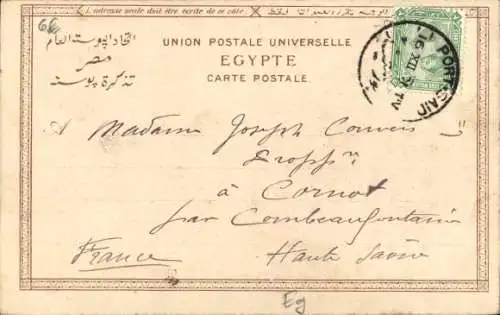 66
L'adresse seule doit être écrite de ce côté.
اتحاد البوسته العام
مصر
تذكرة بوسته
UNION POSTALE UNIVERSELLE
EGYPTE
CARTE POSTALE.
PORT-SAID
16 XII
Madame Joseph
à Cornot
par Combeaufontaine
France
Haute Saône
Eg